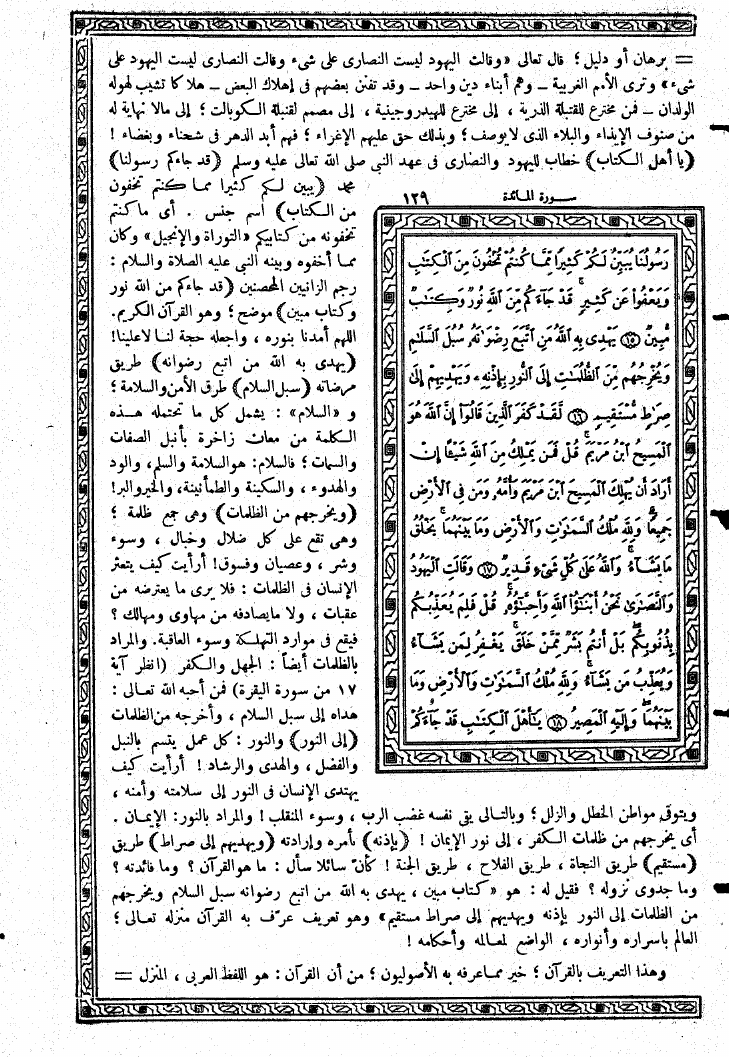 = برهان أو دليل؛ قال تعالى «وقالت اليهود ليست النصارى على شيء وقالت النصارى ليست اليهود على
شيء» وترى الأمم الغربية ــ وهم أبناء دين واحد ــ وقد تفنن بعضهم فى إهلاك البعض ــ هلاكا تشيب لهوله
الولدان ــ فمن مخترع للقنبلة الذرية، إلى مخترع للهيدروجينية، إلى مصمم لقنبلة الكوبالت؛ إلى مالا نهاية له
من صنوف الإيذاء والبلاء الذى لا يوصف؛ وبذلك حق عليهم الإغراء؛ فهم أبد الدهر فى شحناء وبغضاء!
(يا أهل الكتاب) خطاب لليهود والنصارى فى عهد النبى صلى الله تعالى عليه وسلم (قد جاءكم رسولنا)
محمد (يبين لكم كثيرا مما كنتم تخفون
من الكتاب) اسم جنس. أى ما كنتم
تخفونه من كتابيكم «التوراة والإنجيل» وكان
مما أخفوه وبينه النبى عليه الصلاة والسلام:
رجم الزانيين المحصنين (قد جاءكم من الله نور
وكتاب مبين) موضح؛ وهو القرآن الكريم.
اللهم أمدنا بنوره، واجعله حجة لنا لا علينا!
(يهدى به الله من اتبع رضوانه) طريق
مرضاته (سبل السلام) طرق الأمن والسلامة؛
و «السلام»: يشمل كل ما تحتمله هذه
الكلمة من معان زاخرة بأنبل الصفات
والسمات؛ فالسلام: هو السلامة والسلم، والود
والهدوء، والسكينة والطمأنينة، والخير والبر!
(ويخرجهم من الظلمات) وهى جمع ظلمة؛
وهى تقع على كل ضلال وخبال، وسوء
وشر، وعصيان وفسوق! أرأيت كيف يتعثر
الإنسان فى الظلمات: فلا يرى ما يعترضه من
عقبات، ولا ما يصادفه من مهاوى ومهالك؟
فيقع فى موارد التهلكة وسوء العاقبة. والمراد
بالظلمات أيضاً: الجهل والكفر (انظر آية
١٧ من سورة البقرة) فمن أحبه الله تعالى:
هداه إلى سبل السلام، وأخرجه من الظلمات
(إلى النور) والنور: كل عمل يتسم بالنبل
والفضل، والهدى والرشاد! أرأيت كيف
يهتدى الإنسان فى النور إلى سلامته وأمنه،
سورة المائدة ١٢٩
رَسُولُنَا يُبَيِّنُ لَكُمْ كَثِيرًا مِّمَّا كُنتُمْ تُخْفُونَ مِنَ ٱلْكِتَـٰبِ
وَيَعْفُوا۟ عَن كَثِيرٍ ۚ قَدْ جَآءَكُم مِّنَ ٱللَّهِ نُورٌ وَكِتَـٰبٌ
مُّبِينٌ ۝١٥ يَهْدِى بِهِ ٱللَّهُ مَنِ ٱتَّبَعَ رِضْوَٰنَهُۥ سُبُلَ ٱلسَّلَـٰمِ
وَيُخْرِجُهُم مِّنَ ٱلظُّلُمَـٰتِ إِلَى ٱلنُّورِ بِإِذْنِهِۦ وَيَهْدِيهِمْ إِلَىٰ
صِرَٰطٍ مُّسْتَقِيمٍ ۝١٦ لَّقَدْ كَفَرَ ٱلَّذِينَ قَالُوٓا۟ إِنَّ ٱللَّهَ هُوَ
ٱلْمَسِيحُ ٱبْنُ مَرْيَمَ ۚ قُلْ فَمَن يَمْلِكُ مِنَ ٱللَّهِ شَيْـًٔا إِنْ
أَرَادَ أَن يُهْلِكَ ٱلْمَسِيحَ ٱبْنَ مَرْيَمَ وَأُمَّهُۥ وَمَن فِى ٱلْأَرْضِ
جَمِيعًا ۗ وَلِلَّهِ مُلْكُ ٱلسَّمَـٰوَٰتِ وَٱلْأَرْضِ وَمَا بَيْنَهُمَا ۚ يَخْلُقُ
مَا يَشَآءُ ۚ وَٱللَّهُ عَلَىٰ كُلِّ شَىْءٍ قَدِيرٌ ۝١٧ وَقَالَتِ ٱلْيَهُودُ
وَٱلنَّصَـٰرَىٰ نَحْنُ أَبْنَـٰٓؤُا۟ ٱللَّهِ وَأَحِبَّـٰٓؤُهُۥ ۚ قُلْ فَلِمَ يُعَذِّبُكُم
بِذُنُوبِكُم ۖ بَلْ أَنتُم بَشَرٌ مِّمَّنْ خَلَقَ ۚ يَغْفِرُ لِمَن يَشَآءُ
وَيُعَذِّبُ مَن يَشَآءُ ۚ وَلِلَّهِ مُلْكُ ٱلسَّمَـٰوَٰتِ وَٱلْأَرْضِ وَمَا
بَيْنَهُمَا ۖ وَإِلَيْهِ ٱلْمَصِيرُ ۝١٨ يَـٰٓأَهْلَ ٱلْكِتَـٰبِ قَدْ جَآءَكُمْ
ويتوقى مواطن الخطل والزلل؛ وبالتالى يقى نفسه غضب الرب، وسوء المنقلب! والمراد بالنور: الإيمان.
أى يخرجهم من ظلمات الكفر، إلى نور الإيمان! (بإذنه) بأمره وإرادته (ويهديهم إلى صراط) طريق
(مستقيم) طريق النجاة، طريق الفلاح، طريق الجنة! كأن سائلا سأل: ما هو القرآن؟ وما فائدته؟
وما جدوى نزوله؟ فقيل له: هو «كتاب مبين، يهدى به الله من اتبع رضوانه سبل السلام ويخرجهم
من الظلمات إلى النور بإذنه ويهديهم إلى صراط مستقيم» وهو تعريف عرّف به القرآن منزله تعالى؛
العالم بأسراره وأنواره، الواضع لمعالمه وأحكامه!
وهذا التعريف بالقرآن؛ خير مما عرفه به الأصوليون؛ من أن القرآن: هو اللفظ العربى، المنزل =